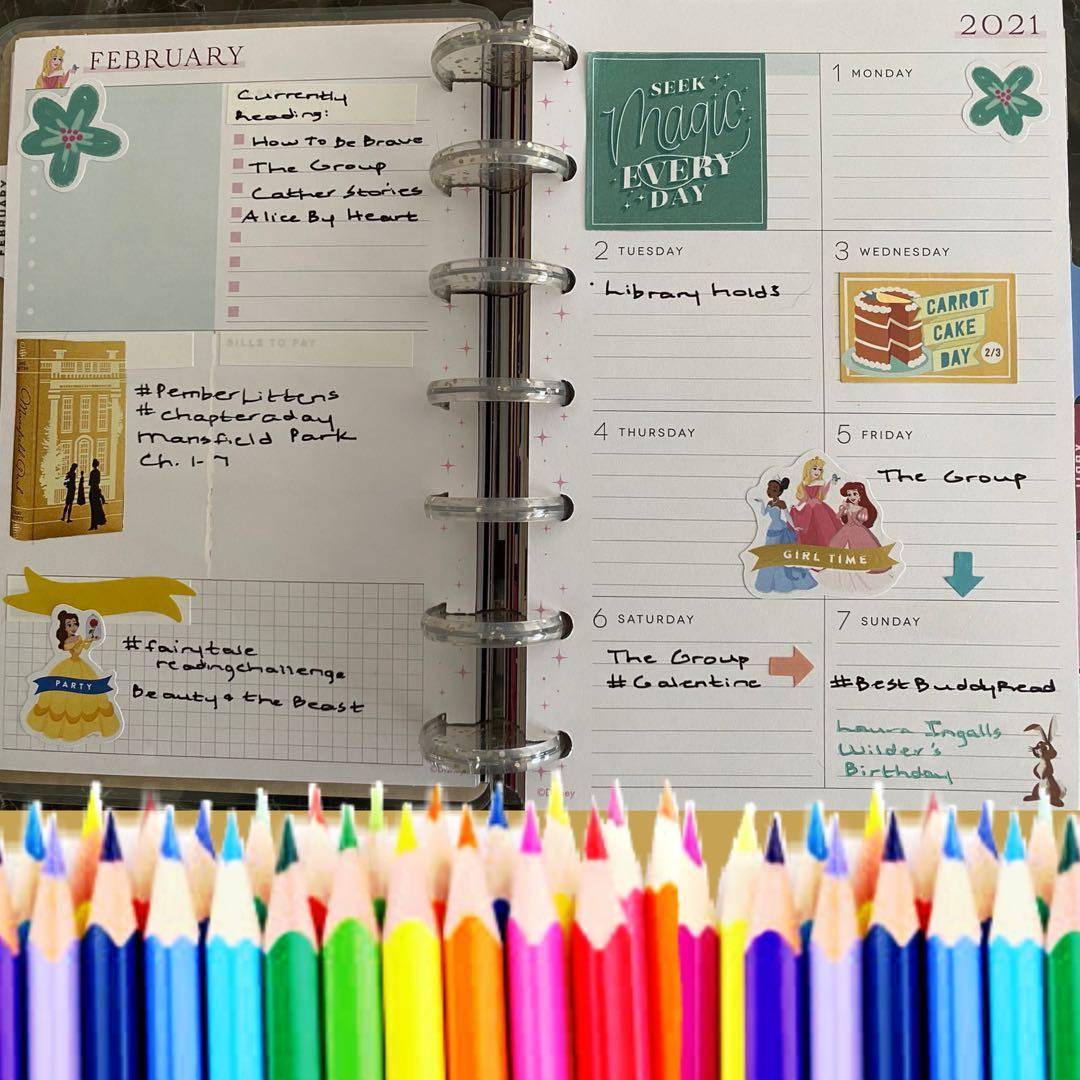 FEBRUARY
FEBRUARY
Currently
Reading:
How To Be Brave
The Group
Cather Stories
Alice By Heart
BILLS TO PAY
Mansfield Park
#PemberLittens
#chapteraday
Mansfield Park
Ch. 1-7
PARTY
#fairytale
readingchallenge
Beauty & the Beast
©Disney
2021
SEEK
Magic
EVERY
DAY
1 MONDAY
2 TUESDAY
Library Holds
3 WEDNESDAY
CARROT
CAKE
DAY 2/3
4 THURSDAY
5 FRIDAY
The Group
GIRL TIME
6 SATURDAY
The Group
#Galentine
7 SUNDAY
#BestBuddyRead
Laura Ingalls
Wilder's
Birthday
©Disney